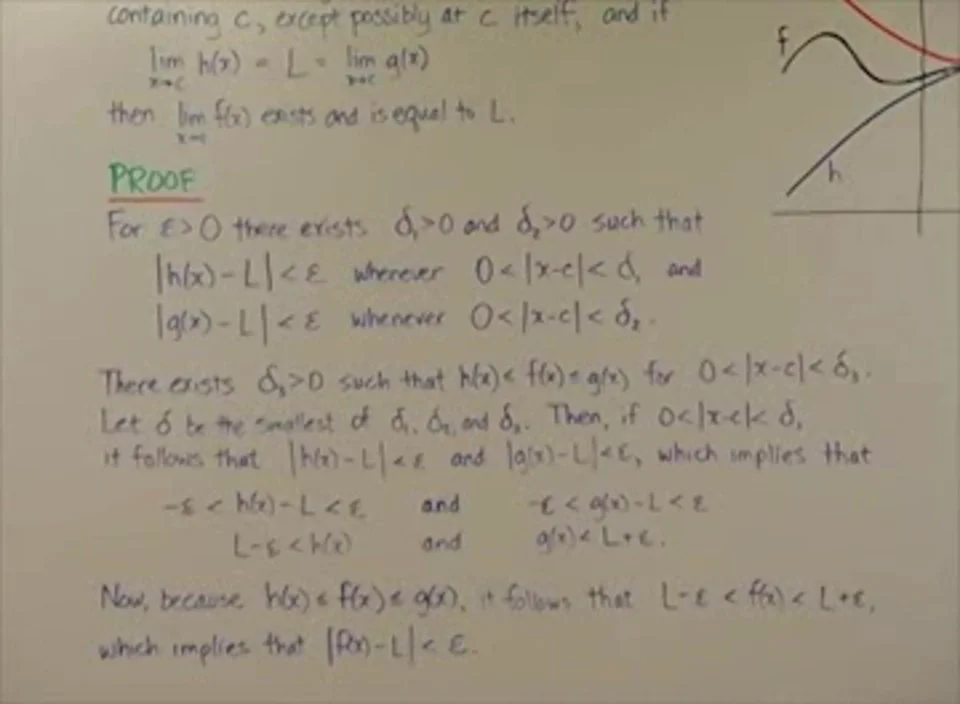 containing c, except possibly at c itself, and if
lim h(x) = L = lim g(x)
x→c x→c
then lim f(x) exists and is equal to L.
x→c
PROOF
For ε>0 there exists δ₁>0 and δ₂>0 such that
|h(x)-L|<ε whenever 0<|x-c|<δ₁ and
|g(x)-L|<ε whenever 0<|x-c|<δ₂.
There exists δ₃>0 such that h(x)≤f(x)≤g(x) for 0<|x-c|<δ₃.
Let δ be the smallest of δ₁, δ₂, and δ₃. Then, if 0<|x-c|<δ,
it follows that |h(x)-L|<ε and |g(x)-L|<ε, which implies that
-ε < h(x)-L < ε and -ε < g(x)-L < ε
L-ε < h(x) and g(x) < L+ε.
Now, because h(x)≤f(x)≤g(x), it follows that L-ε < f(x) < L+ε,
which implies that |f(x)-L| < ε.
f
h